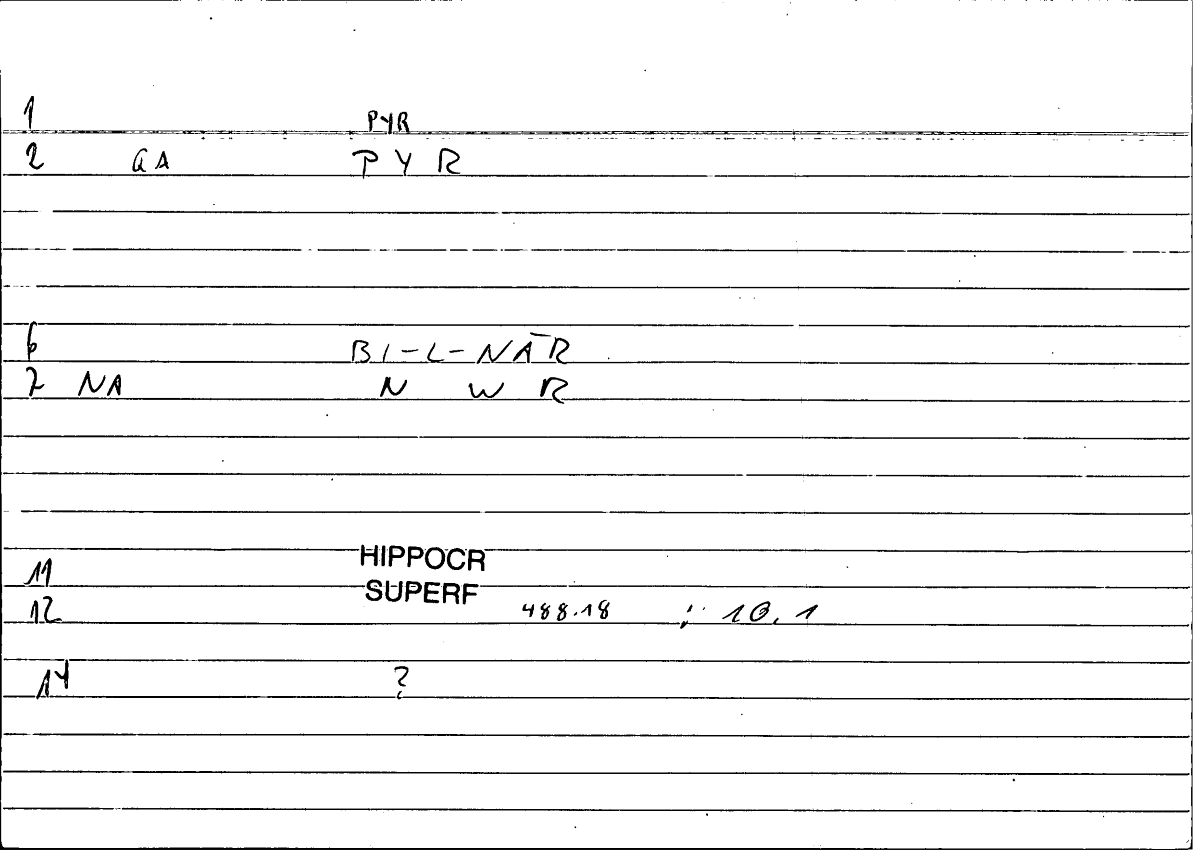 1 PYR
2 GA PYR
6 BI-L-NĀR
7 NA N W R
11 HIPPOCR
SUPERF
12 488.18 ; 10.1
14 ?